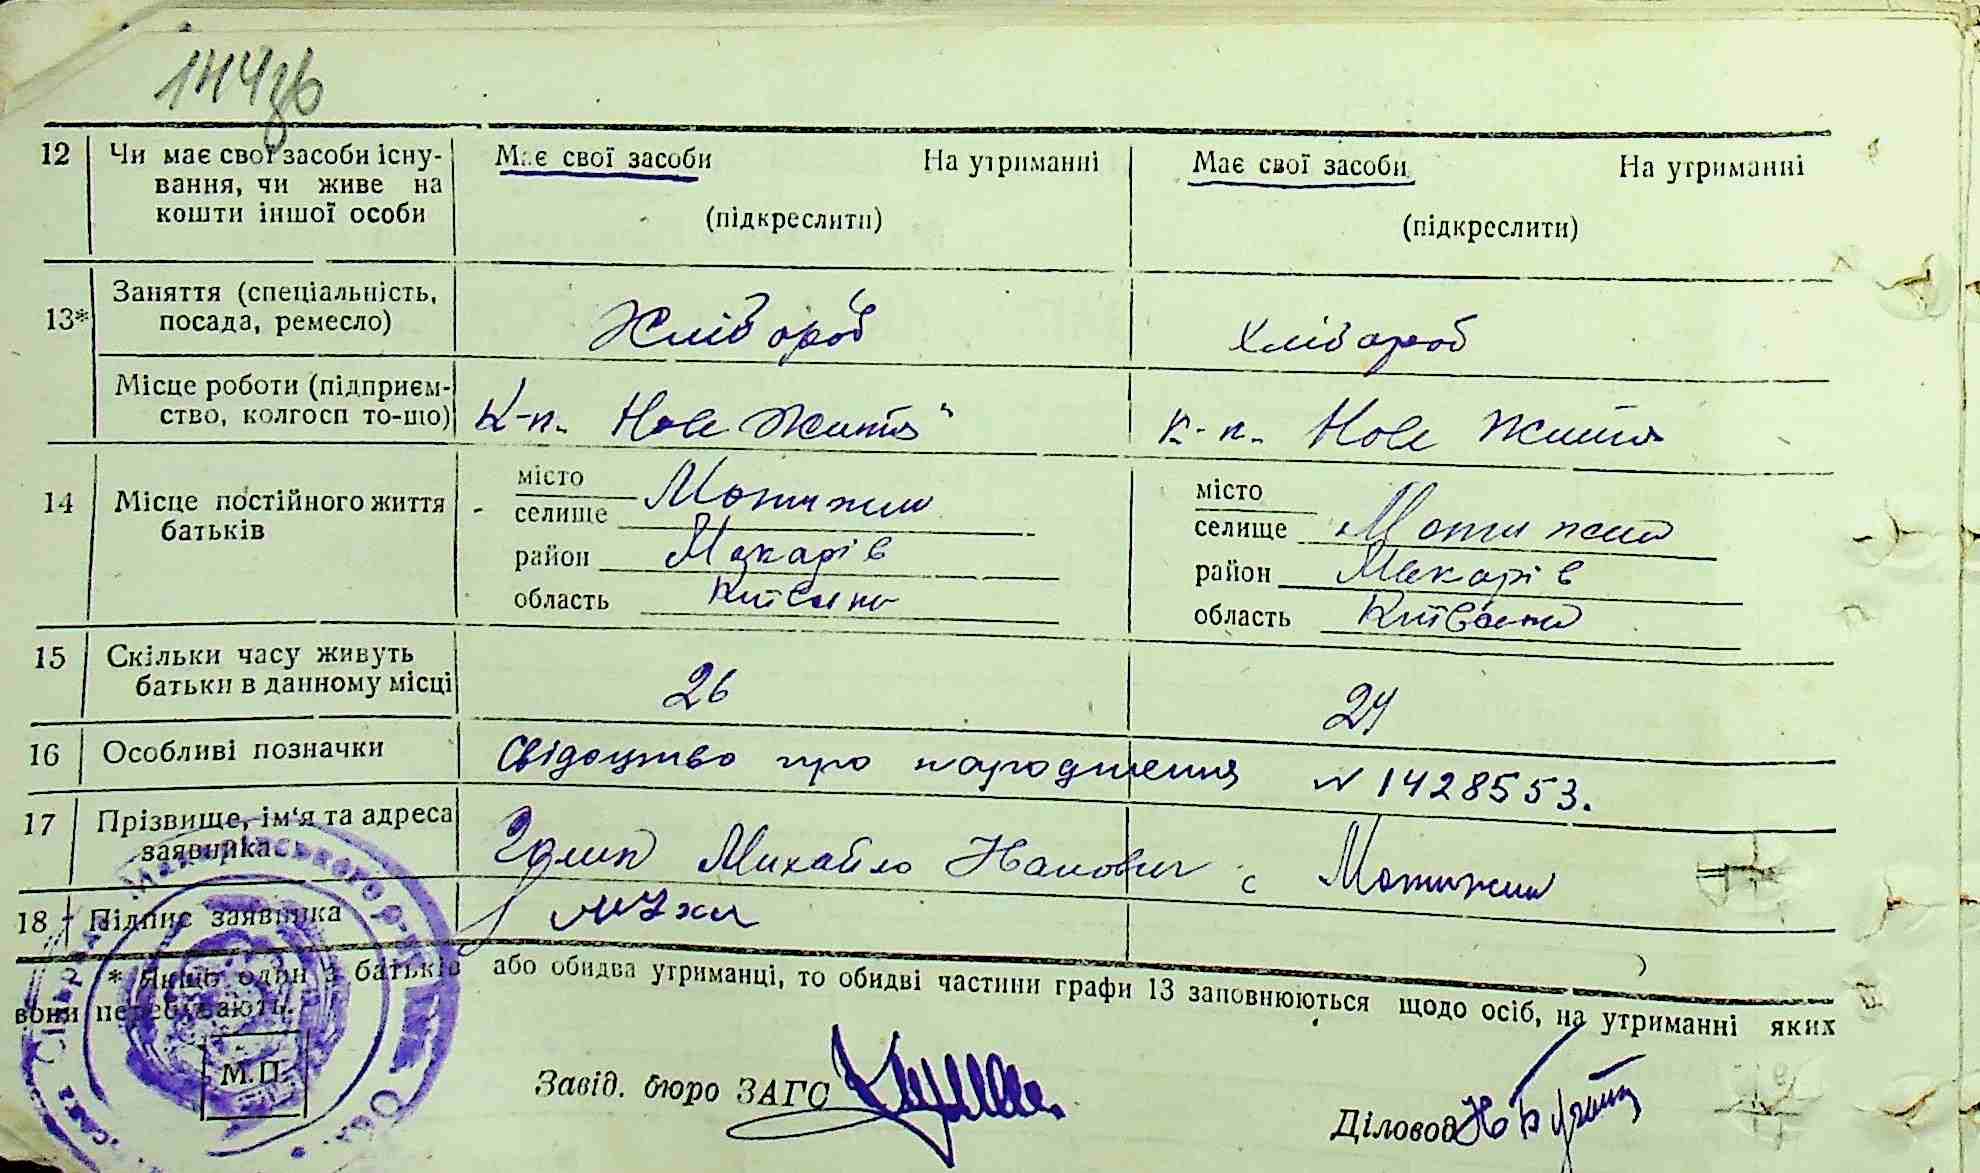 144зв
12 Чи має свої засоби існу- Має свої засоби На утриманні Має свої засоби На утриманні
вання, чи живе на
кошти іншої особи (підкреслити) (підкреслити)
13* Заняття (спеціальність,
посада, ремесло) Хлібороб Хлібороб
Місце роботи (підприєм-
ство, колгосп то-що) К-п. Нове Життя" К-п. Нове Життя
14 Місце постійного життя
батьків
місто місто
селище Мотижин селище Мотижин
район Макарів район Макарів
область Київська область Київська
15 Скільки часу живуть
батьки в данному місці 26 24
16 Особливі позначки Свідоцтво про народження N 1428553.
17 Прізвище, ім'я та адреса
заявника Михайло Іванович с Мотижин
18 Підпис заявника
* Якщо один з батьків або обидва утриманці, то обидві частини графи 13 заповнюються щодо осіб, на утриманні яких
вони перебувають.
М. П.
Завід. бюро ЗАГС
Діловод